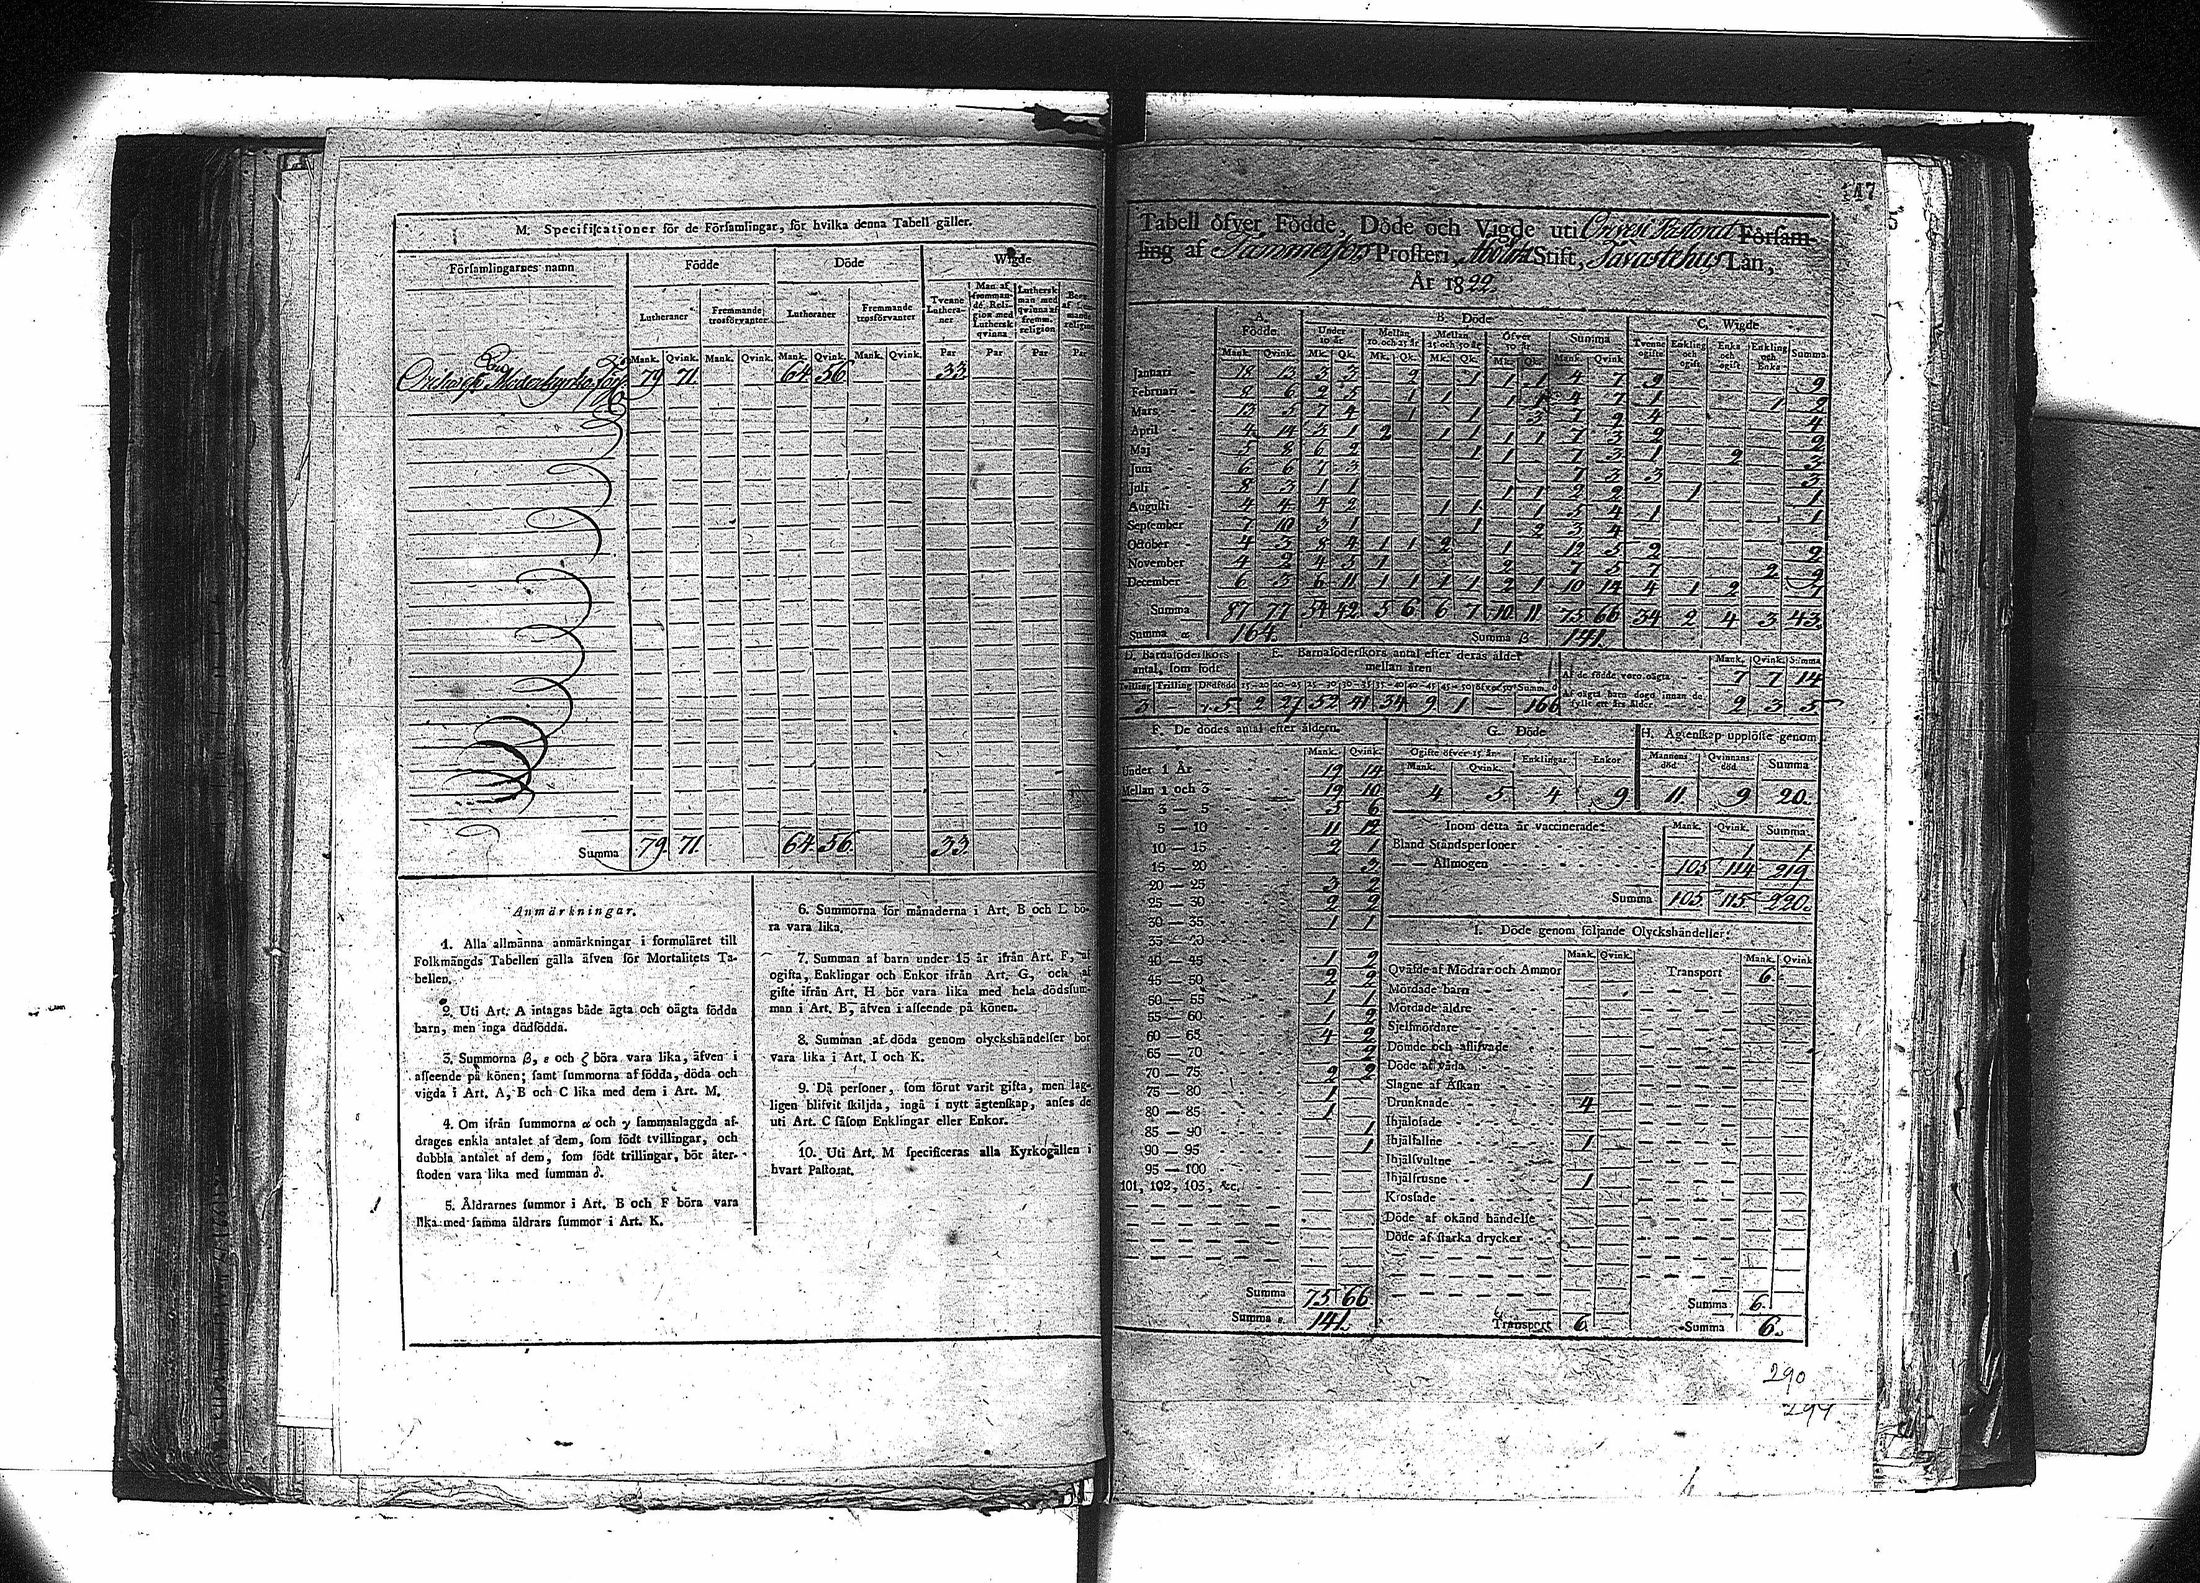 M. Specificationer för de Församlingar, för hvilka denna Tabell gäller.
Församlingarnes namn Födde Döde Wigde
Lutheraner Fremmande trosförvanter Lutheraner Fremmande trosförvanter Tvenne Lutheraner Man af fremmande Religion med Luthersk qvinna Luthersk man med qvinna af fremm. religion
Mank. Qvink. Mank. Qvink. Mank. Qvink. Mank. Qvink. Par Par Par Par
79 71 64 56 33
Summa 79 71 64 56 33
Anmärkningar.
1. Alla allmänna anmärkningar i formuläret till
Folkmängds Tabellen gälla äfven för Mortalitets Ta-
bellen.
2. Uti Art. A intagas både ägta och oägta födda
barn, men inga dödfödda.
3. Summorna β, ε och ζ böra vara lika, äfven i
afseende på könen; samt summorna af födda, döda och
vigda i Art. A, B och C lika med dem i Art. M.
4. Om ifrån summorna α och γ sammanlaggda af-
drages enkla antalet af dem, som födt tvillingar, och
dubbla antalet af dem, som födt trillingar, bör åter-
stoden vara lika med summan δ.
5. Åldrarnes summor i Art. B och F böra vara
lika med samma åldrars summor i Art. K.
6. Summorna för månaderna i Art. B och L bö-
ra vara lika.
7. Summan af barn under 15 år ifrån Art. F, af
ogifta, Enklingar och Enkor ifrån Art. G, och af
gifte ifrån Art. H bör vara lika med hela dödsſum-
man i Art. B, äfven i afseende på könen.
8. Summan af döda genom olyckshändelser bör
vara lika i Art. I och K.
9. Då personer, som förut varit gifta, men lag-
ligen blifvit skiljda, ingå i nytt ägtenskap, anses de
uti Art. C såsom Enklingar eller Enkor.
10. Uti Art. M specificeras alla Kyrkogällen i
hvart Pastorat.
147
Tabell öfver Födde, Döde och Vigde uti Orivesi Pastorat Församling
af Tammerfors Prosteri, Åbo Stift, Tavastehus Län,
År 1822
A. Födde. B. Döde C. Wigde
Under 10 år Mellan 10 och 25 år Mellan 25 och 50 år Öfver 50 år Summa Tvenne ogifte Enkling och ogift Enka och ogift Enkling och Enka Summa
Mank. Qvink. Mk. Qk. Mk. Qk. Mk. Qk. Mk. Qk. Mank. Qvink.
Januari 18 13 3 3 2 1 1 1 4 7 9 9
Februari 8 6 2 5 1 1 1 1 4 7 1 1 2
Mars 13 5 7 4 1 1 3 7 9 4 4
April 4 14 3 1 2 1 1 1 1 7 3 2 2
Maj 5 8 6 2 1 1 7 3 1 2 3
Juni 6 6 7 3 7 3 3 3
Juli 8 3 1 1 1 1 2 2 1 1
Augusti 4 4 4 2 1 1 1 5 4 1 1
September 7 10 3 1 1 2 3 4
October 4 3 8 4 1 1 2 1 12 5 2 2
November 4 2 4 5 1 2 7 5 7 2 9
December 6 3 6 11 1 1 1 1 2 1 10 14 4 1 2 7
Summa 87 77 54 42 5 6 6 7 10 11 75 66 34 2 4 3 43
Summa α 164. Summa β 141.
D. Barnaföderskors antal, som födt E. Barnaföderskors antal efter deras ålder mellan åren
Tvilling Trilling Dödfödde 15-20 20-25 25-30 30-35 35-40 40-45 45-50 öfver 50 Summa
3 5 2 27 52 41 34 9 1 166
Mank. Qvink. Summa
Af de födde voro oägta 7 7 14
Af oägta barn dogo innan de fyllt ett års ålder 2 3 5
F. De dödes antal efter åldern.
Mank. Qvink.
Under 1 År 19 14
Mellan 1 och 3 19 10
3 — 5 5 6
5 — 10 11 12
10 — 15 2 1
15 — 20 3
20 — 25 3 2
25 — 30 2 2
30 — 35 1 1
35 — 40
40 — 45 1 2
45 — 50 2 2
50 — 55 1 1
55 — 60 1 2
60 — 65 4 2
65 — 70 2
70 — 75 2 2
75 — 80 1
80 — 85 1
85 — 90 1
90 — 95 1
95 — 100
101, 102, 103, &c.
Summa 75 66
Summa ε 141.
G. Döde
Ogifte öfver 15 år Enklingar Enkor
Mank. Qvink.
4 5 4 9
H. Ägtenskap upplöste genom
Mannens död. Qvinnans död. Summa
11 9 20.
Inom detta år vaccinerade: Mank. Qvink. Summa.
Bland Ståndspersoner 1 1
— — Allmogen 105 114 219
Summa 105 115 220.
I. Döde genom följande Olyckshändelser:
Mank. Qvink. Mank. Qvink
Qväfde af Mödrar och Ammor Transport 6
Mördade barn
Mördade äldre
Sjelfmördare
Dömde och aflifvade
Döde af våda
Slagne af Åskan
Drunknade 4
Ihjälosade
Ihjälfallne 1
Ihjälsvultne
Ihjälfrusne 1
Krossade
Döde af okänd händelse
Döde af starka drycker
Summa 6.
Transport 6 Summa 6.
290
294